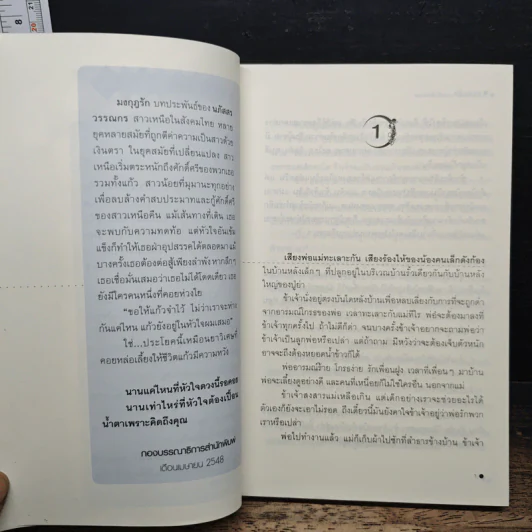 มงกุฎรัก บทประพันธ์ของ นภัสสร
วรรณกร สาวเหนือในสังคมไทย หลาย
ยุคหลายสมัยที่ถูกตีค่าความเป็นสาวด้วย
เงินตรา ในยุคสมัยที่เปลี่ยนแปลง สาว
เหนือเริ่มตระหนักถึงศักดิ์ศรีของพวกเธอ
รวมทั้งแก้ว สาวน้อยที่มุมานะทุกอย่าง
เพื่อลบล้างคำสบประมาทและกู้ศักดิ์ศรี
ของสาวเหนือคืน แม้เส้นทางที่เดิน เธอ
จะพบกับความทดท้อ แต่หัวใจอันเข้ม
แข็งก็ทำให้เธอฝ่าอุปสรรคได้ตลอดมา แม้
บางครั้งเธอต้องต่อสู้เพียงลำพังหากลึกๆ
เธอเชื่อมั่นเสมอว่าเธอไม่ได้โดดเดี่ยว เธอ
ยังมีใครคนหนึ่งที่คอยห่วงใย
"ขอให้แก้วจำไว้ ไม่ว่าเราจะห่าง
กันแค่ไหน แก้วยังอยู่ในหัวใจผมเสมอ"
ใช่...ประโยคนี้เหมือนยาวิเศษที่
คอยหล่อเลี้ยงให้ชีวิตแก้วมีความหวัง
นานแค่ไหนที่หัวใจดวงนี้รอคอย
นานเท่าไหร่ที่หัวใจต้องเปื้อน
น้ำตาเพราะคิดถึงคุณ
กองบรรณาธิการสำนักพิมพ์
เดือนเมษายน 2548
1
เสียงพ่อแม่ทะเลาะกัน เสียงร้องไห้ของน้องคนเล็กดังก้อง
ในบ้านหลังเล็กๆ ที่ปลูกอยู่ในบริเวณบ้านรั้วเดียวกันกับบ้านหลัง
ใหญ่ของปู่ย่า
ข้าเจ้านั่งอยู่ตรงบันไดหลังบ้านเพื่อหลบเลี่ยงกับการที่จะถูกด่า
จากอารมณ์โกรธของพ่อ เวลาทะเลาะกับแม่ทีไร พ่อจะต้องมาลงที่
ข้าเจ้าทุกครั้งไป ถ้าไม่ตีก็ด่า จนบางครั้งข้าเจ้าอยากจะถามพ่อว่า
ข้าเจ้าเป็นลูกพ่อหรือเปล่า แต่ถ้าถาม มีหวังว่าจะต้องเจ็บตัวหนัก
อาจจะถึงต้องหยอดน้ำข้าวก็ได้
พ่ออารมณ์ร้าย โกรธง่าย รักเพื่อนฝูง เวลาที่เพื่อนๆ มาบ้าน
พ่อจะเลี้ยงดูอย่างดี และคนที่เหนื่อยก็ไม่ใช่ใครอื่น นอกจากแม่
ข้าเจ้าสงสารแม่เหลือเกิน แต่เด็กอย่างเราจะช่วยอะไรได้
ตัวเองก็ยังจะเอาไม่รอด ถึงเดี๋ยวนี้มันยังคาใจข้าเจ้าอยู่ว่าพ่อรักพวก
เราหรือเปล่า
พ่อไปทำงานแล้ว แม่ก็เก็บผ้าไปซักที่ลำธารข้างบ้าน ข้าเจ้า